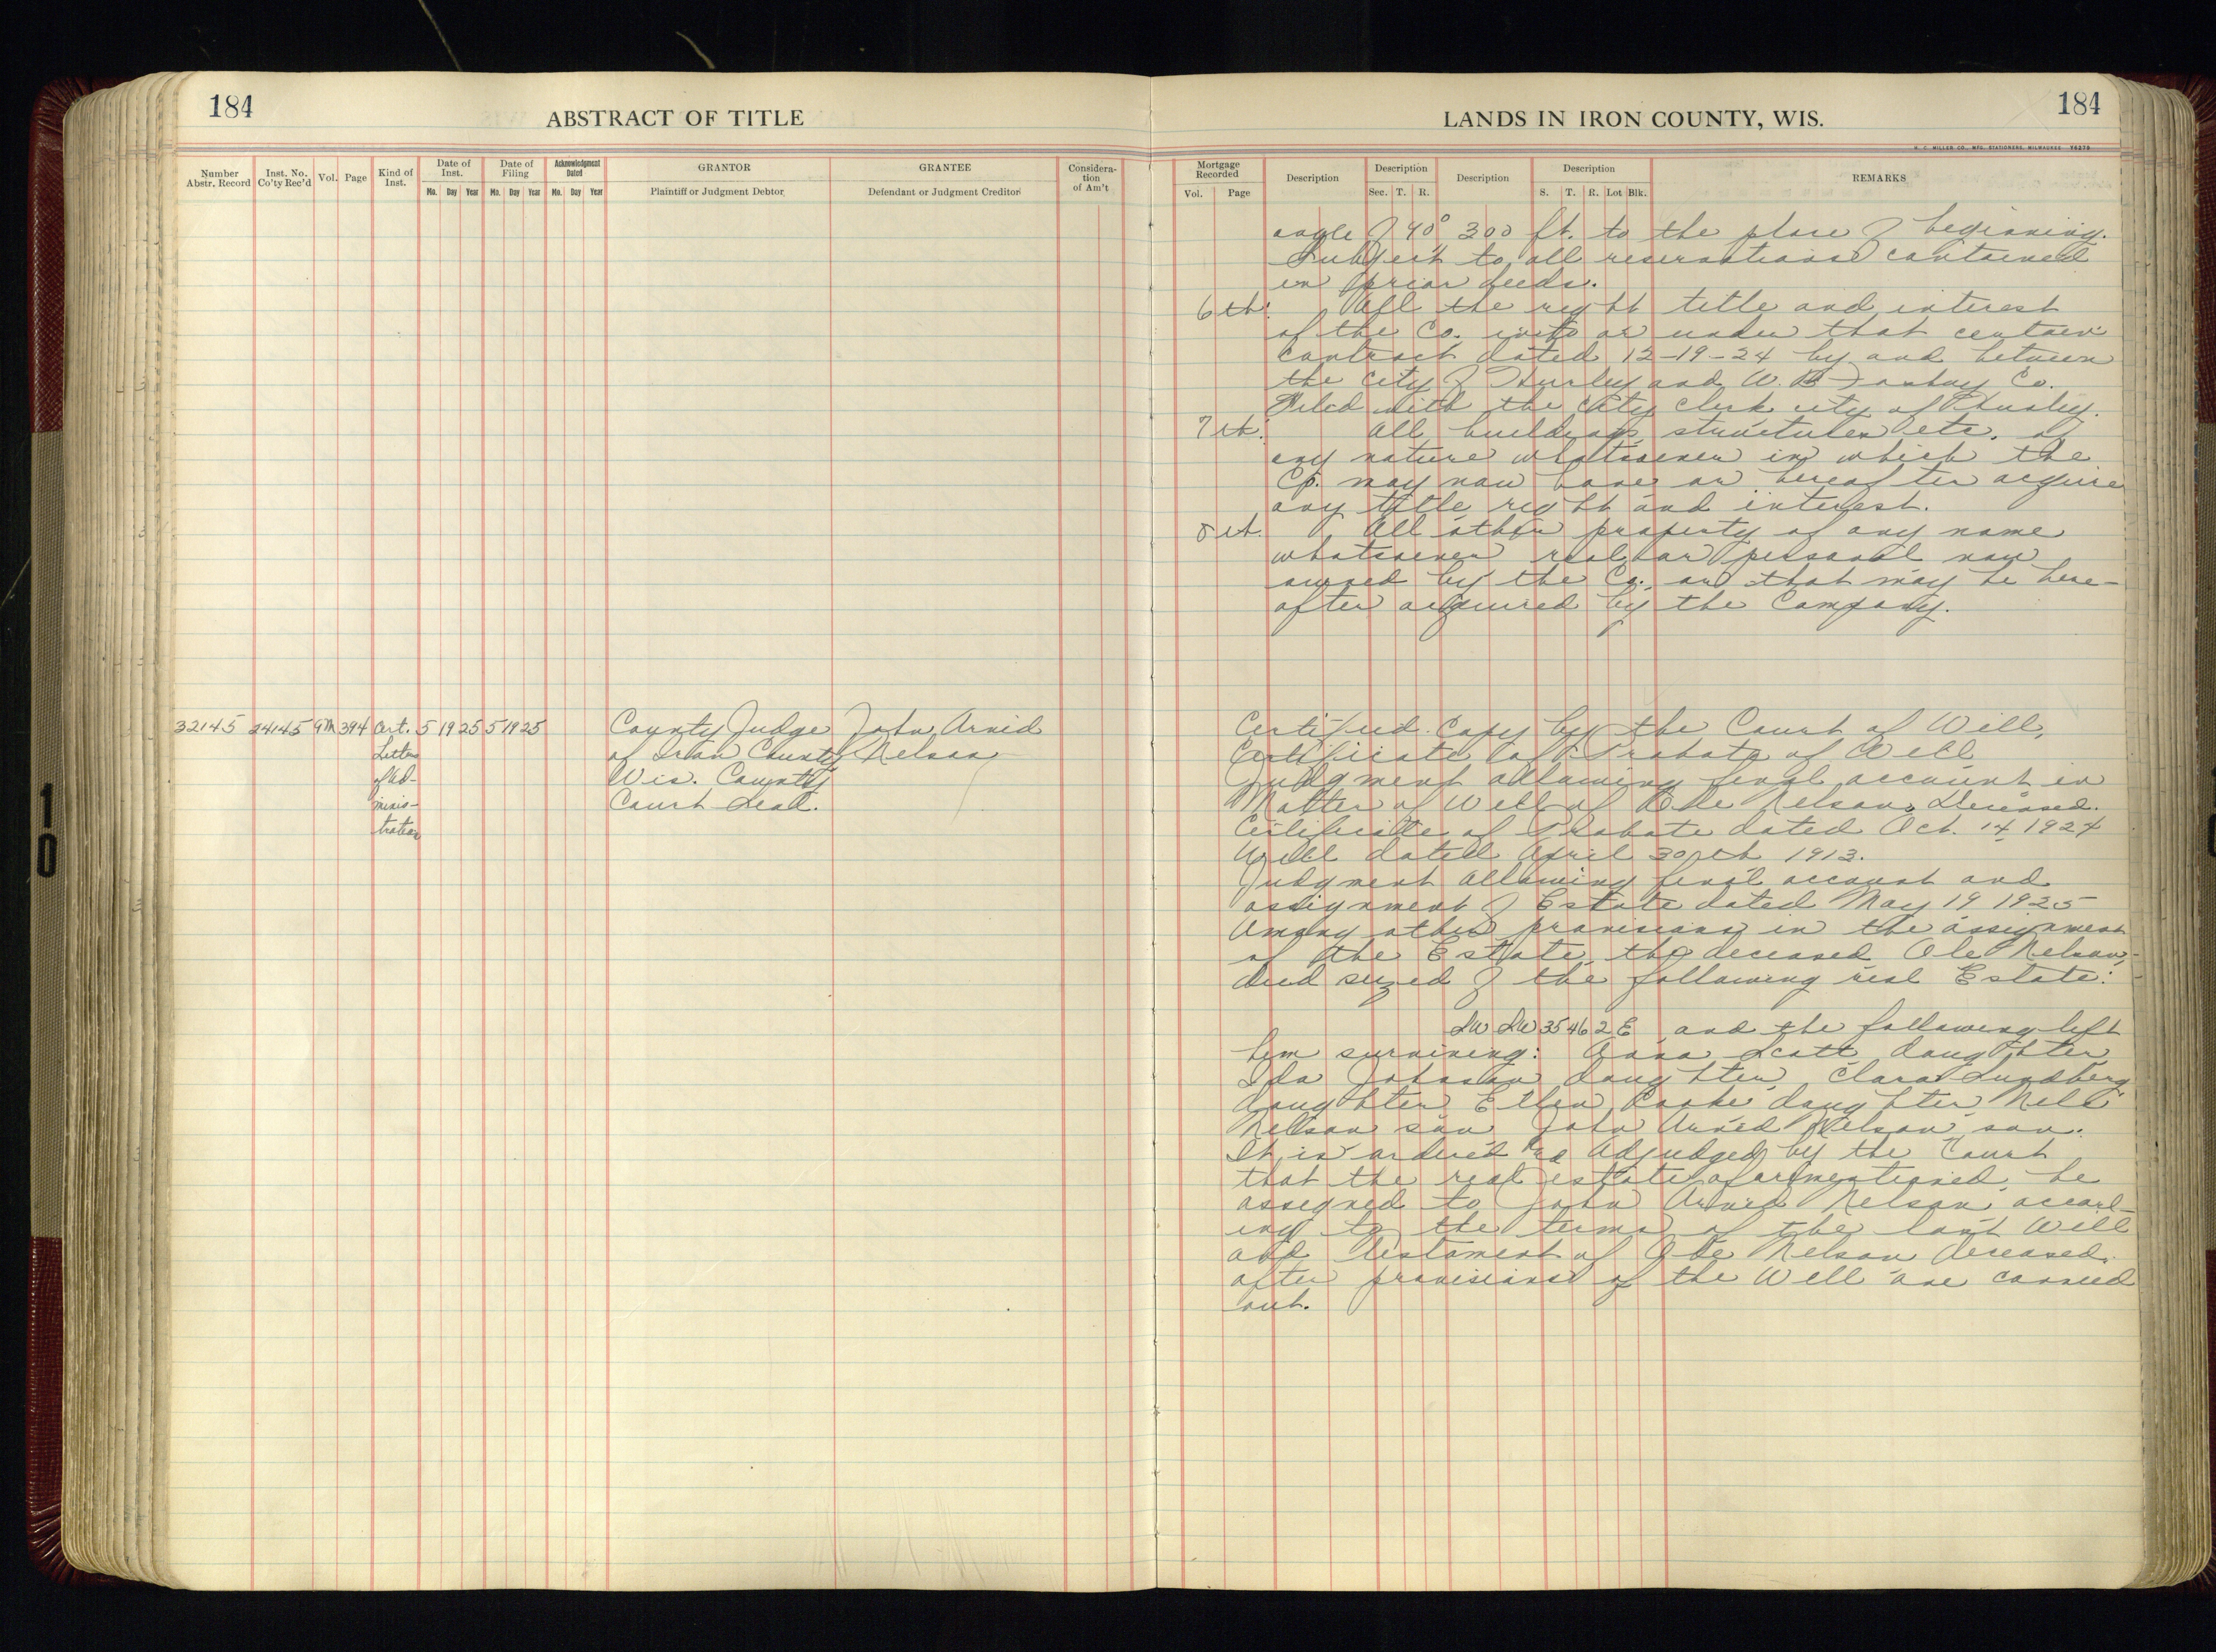 184
ABSTRACT OF TITLE
Number Abstr. Record
Inst. No. Co'ty Rec'd
Vol.
Page
Kind of Inst.
Date of Inst.
Mo. Day Year
Date of Filing
Mo. Day Year
Acknowledgment Dated
Mo. Day Year
GRANTOR
Plaintiff or Judgment Debtor
GRANTEE
Defendant or Judgment Creditor
Considera-
tion
of Am't
32145 24145 9M 394 Cert. 5 19 25 5 19 25 County Judge John Arvid
Letters of Iron County Nelson
of Ad- Wis. County
minis- Court Seal.
tration
LANDS IN IRON COUNTY, WIS.
184
H. C. MILLER CO., MFG. STATIONERS, MILWAUKEE
Mortgage Recorded
Vol. Page
Description
Description
Sec. T. R.
Description
Description
S. T. R. Lot Blk.
REMARKS
angle of 90° 300 ft. to the place of beginning.
Subject to all reservations contained
in prior deeds.
6th: All the right title and interest
of the Co. into or under that certain
contract dated 12-19-24 by and between
the city of Hurley and W. B. Co.
Filed with the City Clerk city of Hurley.
7th: All buildings structures etc. of
any nature whatsoever in which the
Co. may now have or hereafter acquire
any title right and interest.
8th. All other property of any name
whatsoever real or personal now
owned by the Co. or that may be here-
after acquired by the Company.
Certified Copy by the Court of Will,
Certificate of Probate of Will
Judgment allowing final account in
Matter of Will of Ole Nelson, Deceased.
Certificate of Probate dated Oct. 14, 1924
Will dated April 30th 1913.
Judgment allowing final account and
assignment of Estate dated May 19 1925
Among other provisions in the assignment
of the Estate, the deceased Ole Nelson,
died seized of the following real Estate:
SW SW 35 46 2 E and the following left
him surviving: Anna Scott daughter,
Ida Johnson daughter, Clara Lundberg
daughter, Ellen daughter, Nels
Nelson son, John Arvid Nelson, son.
It is ordered and Adjudged by the Court
that the real estate aforementioned, be
assigned to John Arvid Nelson, accord-
ing to the terms of the last Will
and Testament of Ole Nelson deceased.
after provisions of the Will are carried
out.